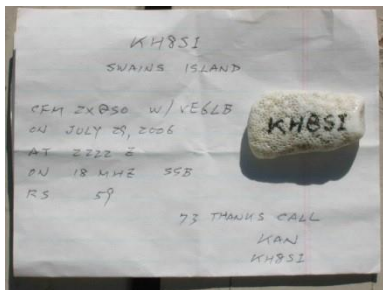 KH8SI
SWAINS ISLAND
CFM 2X QSO W/ VE6LB
ON JULY 29, 2006
AT 2222 Z
ON 18 MHZ SSB
RS 59
73 THANKS CALL
KAN
KH8SI
KH8SI